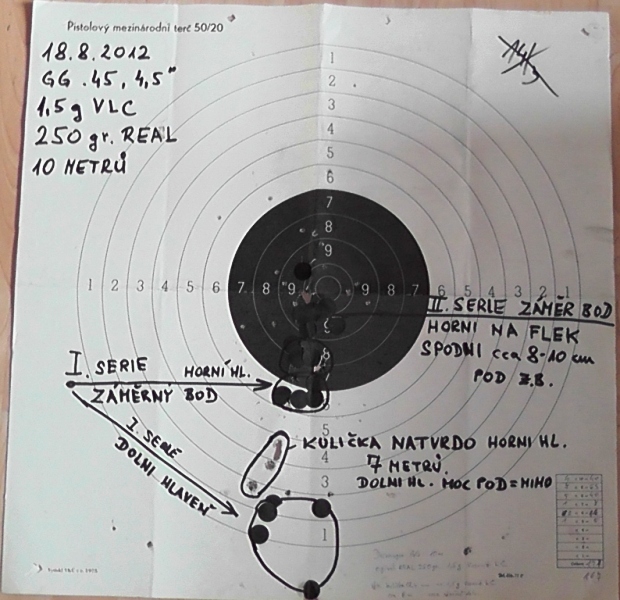 Pistolový mezinárodní terč 50/20
18.8.2012
GG .45, 4,5"
1,5g VLC
250 gr. REAL
10 METRŮ
1
2
3
4
5
6
7
8
9
1 2 3 4 5 6 7 8 9 9 8 7 6 5 4 3 2 1
II. SERIE ZÁMĚR BOD
HORNI NA FLEK
SPODNI cca 8-10 cm
POD Z.B.
I. SERIE HORNÍ HL.
ZÁMĚRNÝ BOD
I. SERIE
DOLNI HLAVEŇ
9
8
6
5
4
3
1
KULIČKA NATVRDO HORNI HL.
7 METRŮ.
DOLNI HL. MOC POD = MIMO